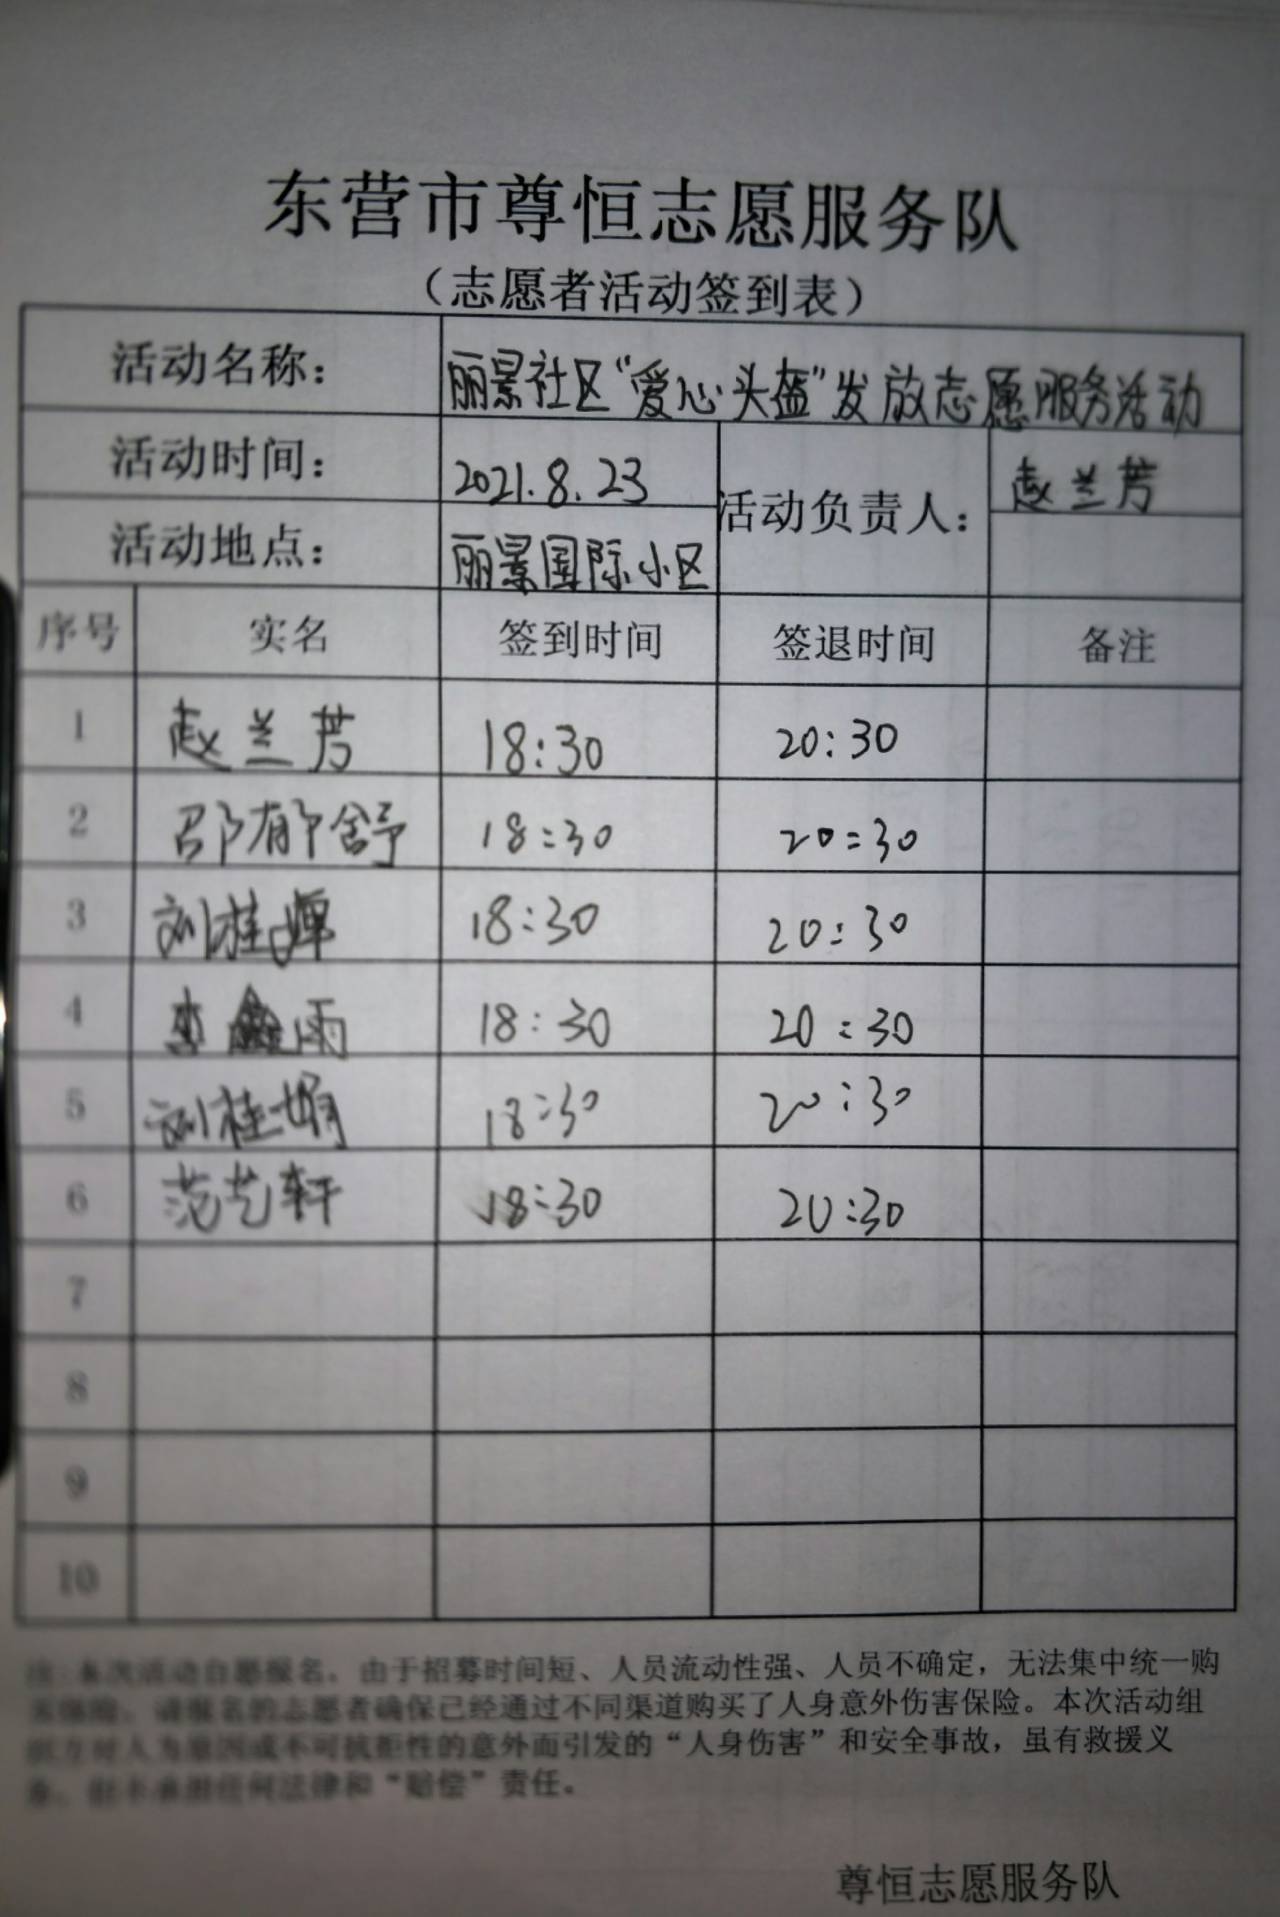 东营市尊恒志愿服务队
（志愿者活动签到表）
活动名称： 丽景社区“爱心头盔”发放志愿服务活动
活动时间： 2021.8.23 活动负责人： 赵兰芳
活动地点： 丽景国际小区
序号 实名 签到时间 签退时间 备注
1 赵兰芳 18:30 20:30
2 邵郁舒 18:30 20:30
3 刘桂婵 18:30 20:30
4 李鑫雨 18:30 20:30
5 刘桂娟 18:30 20:30
6 范艺轩 18:30 20:30
7
8
9
10
注:本次活动自愿报名，由于招募时间短、人员流动性强、人员不确定，无法集中统一购
买保险，请报名的志愿者确保已经通过不同渠道购买了人身意外伤害保险。本次活动组
织方对人为原因或不可抗拒性的意外而引发的“人身伤害”和安全事故，虽有救援义
务，但不承担任何法律和“赔偿”责任。
尊恒志愿服务队